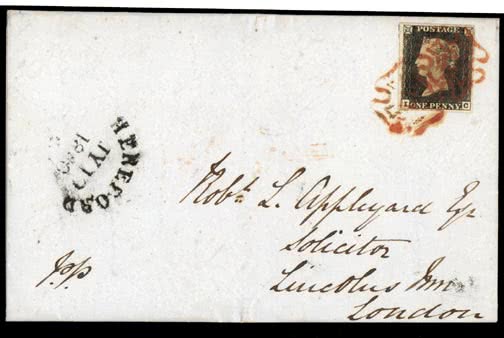 POSTAGE
I C
ONE PENNY
HEREFORD
JY 1
1840
Robt. L. Appleyard Esqr
Solicitor
Lincolns Inn
London
p.p.